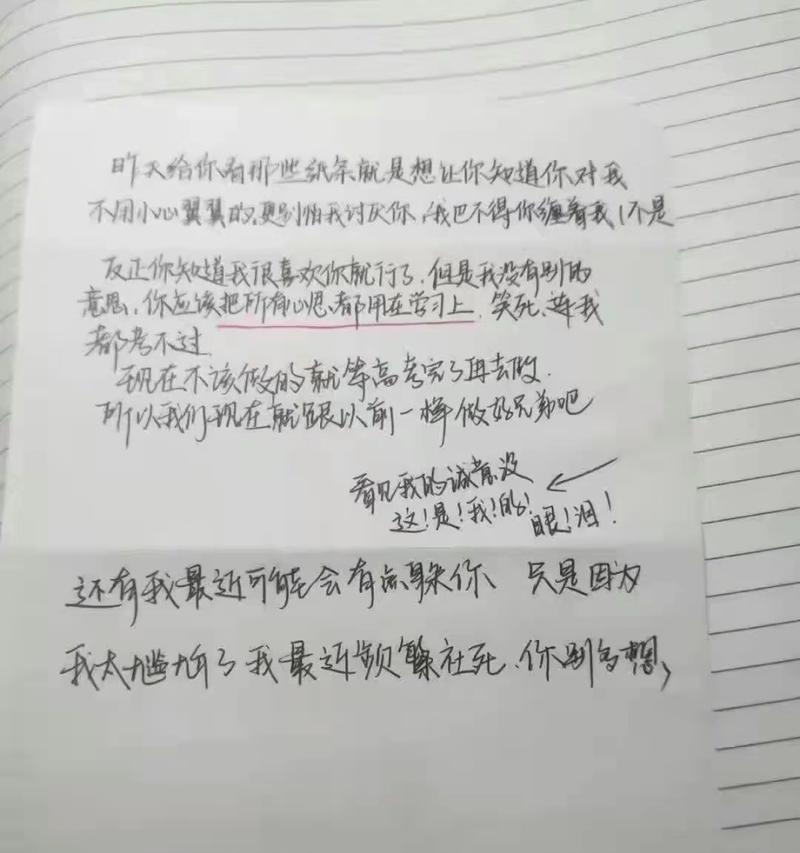 昨天给你看那些纸条就是想让你知道你对我
不用小心翼翼的,更别怕我讨厌你,我巴不得你缠着我(不是
反正你知道我很喜欢你就行了,但是我没有别的
意思,你应该把所有心思都用在学习上,笑死,连我
都考不过.
现在不该做的就等高考完了再去做.
所以我们现在就跟以前一样做好兄弟吧
看见我的诚意没
这!是!我!的!眼!泪!
还有我最近可能会有点躲你、只是因为
我太尴尬了我最近频繁社死,你别多想,